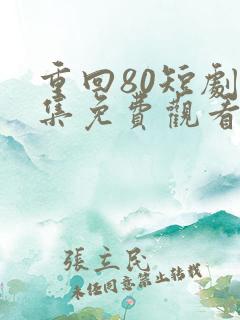 重回80短劇
集免費觀看
張立民
未经同意禁止转载